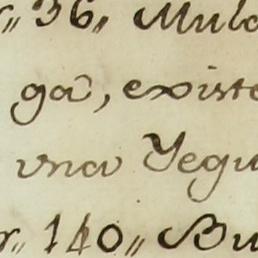 r,, 36,, Mula
ga, existe
vna Yegu
r,, 140,, Bu